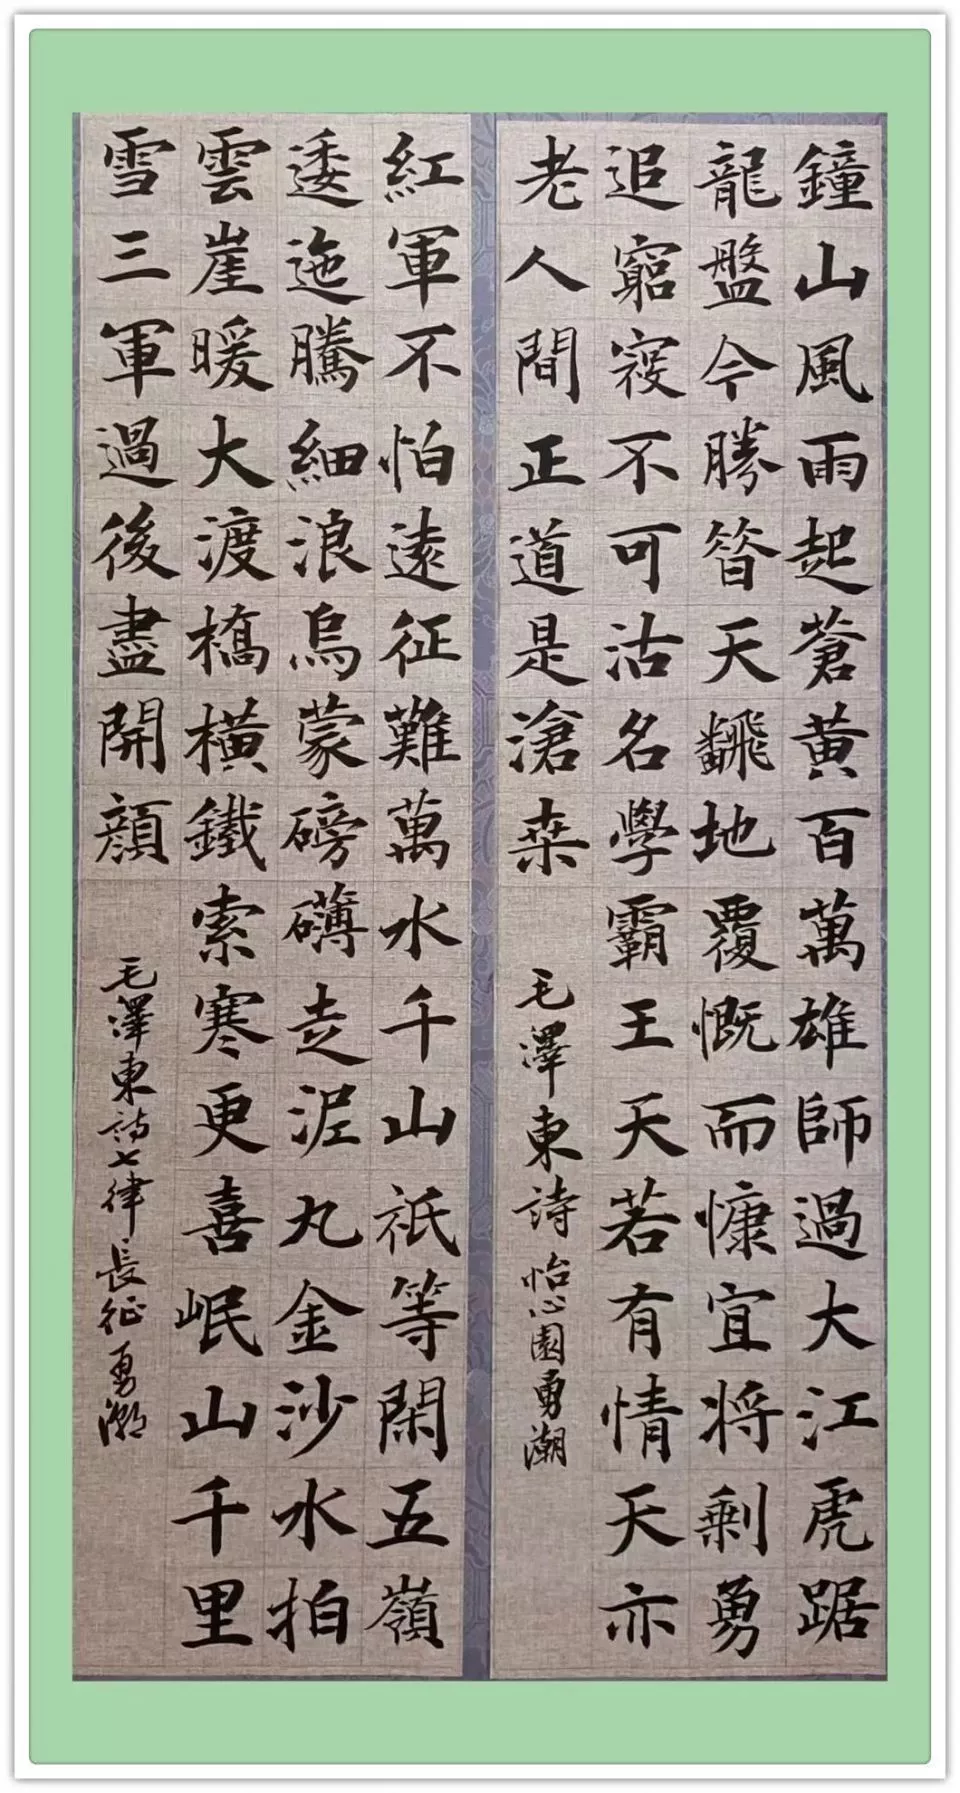 鐘山風雨起蒼黄百萬雄師過大江虎踞
龍盤今勝昔天飜地覆慨而慷宜將剩勇
追窮寇不可沽名學霸王天若有情天亦
老人間正道是滄桑
毛澤東詩 怡心園勇潮
紅軍不怕遠征難萬水千山祇等閑五嶺
逶迤騰細浪烏蒙磅礴走泥丸金沙水拍
雲崖暖大渡橋橫鐵索寒更喜岷山千里
雪三軍過後盡開顔
毛澤東詩七律長征勇潮